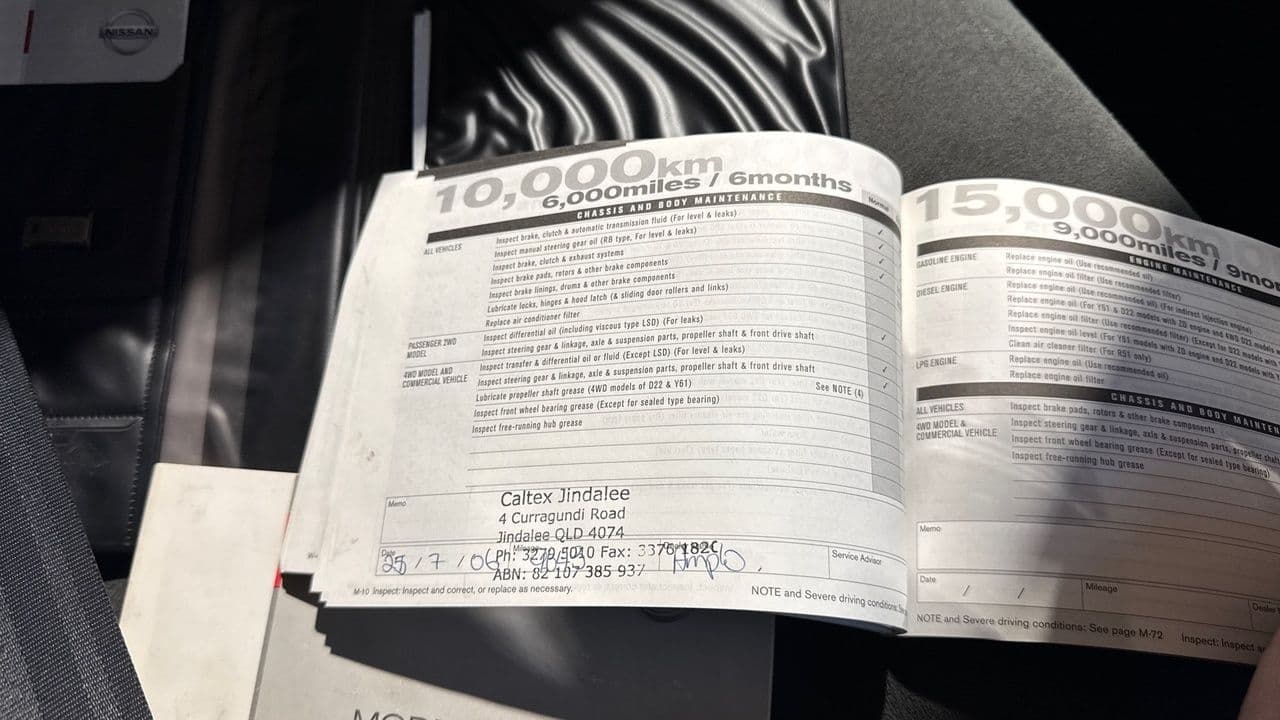 NISSAN
10,000km
6,000miles / 6months
CHASSIS AND BODY MAINTENANCE
Normal
ALL VEHICLES
Inspect brake, clutch & automatic transmission fluid (For level & leaks)
Inspect manual steering gear oil (RB type, For level & leaks)
Inspect brake, clutch & exhaust systems
Inspect brake pads, rotors & other brake components
Inspect brake linings, drums & other brake components
Lubricate locks, hinges & hood latch (& sliding door rollers and links)
Replace air conditioner filter
PASSENGER 2WD MODEL
Inspect differential oil (including viscous type LSD) (For leaks)
Inspect steering gear & linkage, axle & suspension parts, propeller shaft & front drive shaft
4WD MODEL AND COMMERCIAL VEHICLE
Inspect transfer & differential oil or fluid (Except LSD) (For level & leaks)
Inspect steering gear & linkage, axle & suspension parts, propeller shaft & front drive shaft
Lubricate propeller shaft grease (4WD models of D22 & Y61) See NOTE (4)
Inspect front wheel bearing grease (Except for sealed type bearing)
Inspect free-running hub grease
Memo
Caltex Jindalee
4 Curragundi Road
Jindalee QLD 4074
Ph: 3279 5010 Fax: 3376 182C
ABN: 82 107 385 937
Date
25 / 7 / 06
Service Advisor
M-10 Inspect: Inspect and correct, or replace as necessary.
NOTE and Severe driving conditions:
15,000km
9,000miles / 9mo
ENGINE MAINTENANCE
GASOLINE ENGINE
Replace engine oil (Use recommended oil)
Replace engine oil filter (Use recommended filter)
DIESEL ENGINE
Replace engine oil (Use recommended oil) (For indirect injection engine)
Replace engine oil (For Y61 & D22 models with ZD engine and 4WD D22 models
Replace engine oil filter (Use recommended filter) (Except for D22 models with
Inspect engine oil level (For Y61 models with ZD engine and D22 models with
Clean air cleaner filter (For R51 only)
LPG ENGINE
Replace engine oil (Use recommended oil)
Replace engine oil filter
CHASSIS AND BODY MAINTEN
ALL VEHICLES
Inspect brake pads, rotors & other brake components
4WD MODEL & COMMERCIAL VEHICLE
Inspect steering gear & linkage, axle & suspension parts, propeller shaft
Inspect front wheel bearing grease (Except for sealed type bearing)
Inspect free-running hub grease
Memo
Date
/ /
Mileage
Dealer
NOTE and Severe driving conditions: See page M-72 Inspect: Inspect a